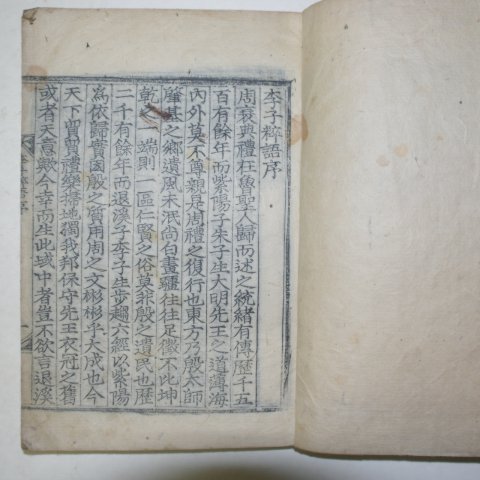 李子粹語序
周衰典禮在魯聖人歸而述之統緒有傳歷千五
百有餘年而紫陽子朱子生大明先王之道薄海
內外莫不尊親見周禮之復行也東方乃殷太師
肇基之鄉遺風未泯尚白畫疆往往足徵不比坤
乾之一端則一區仁賢之俗莫非殷之遺民也歷
二千有餘年而退溪子李子生步趨六經以紫陽
為依歸賁國殷之質用周之文彬彬乎大成也今
天下冑䎡禮樂掃地獨我邦保守先王衣冠之舊
或者天意歟今幸而生此域中者豈不欲言退溪